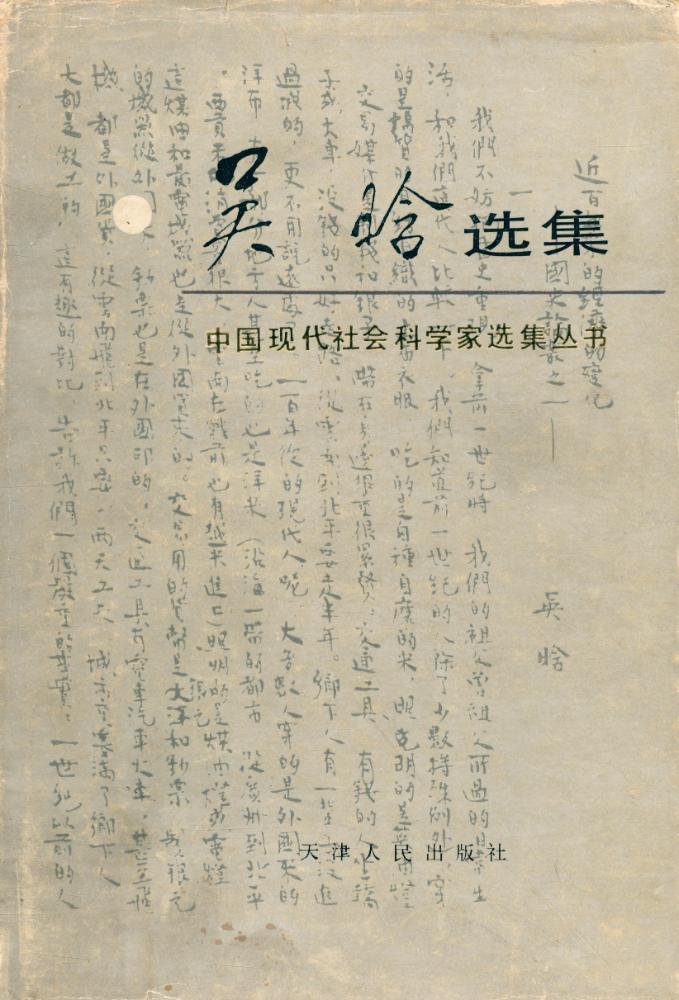 吴晗选集
中国现代社会科学家选集丛书
天津人民出版社
近百的經濟的變化
國史論叢之一——
吳晗
一
我們不妨史重現，拿前一世紀時，我們的祖父曾祖父所過的日常生
活，和我們這代人比較一下，我們知道前一世紀的人除了少數特殊例外，穿
的是織的土布衣服，吃的是自種自磨的米，照明的是菜油燈
交易媒介是和銀子，帶在身邊很累贅。交通工具，有錢的人坐轎
子或大車，沒錢的只好走路，從雲南到北平要走半年。鄉下人有一些沒進
過城的，更不用說遠處了。一百年後的現代人呢，大多數人穿的是外國來的
洋布，大部分地方人甚至吃的也是洋米（沿海一帶的都市，從廣州到北平
，西貢米的消費很大，雲南在戰前也有越米進口）照明的是煤油燈或電燈
這煤油和發電機器也是從外國買來的。交易用的貨幣是大洋和鈔票，銀元
的機器從外國來，鈔票也是在外國印的，交通工具有電車汽車火車，甚至飛
機，都是外國貨，從雲南飛到北平只要兩天工夫，城市裏擠滿了鄉下人
大都是做工的，這有趣的對比，告訴我們一個嚴重的事實：一世紀以前的人